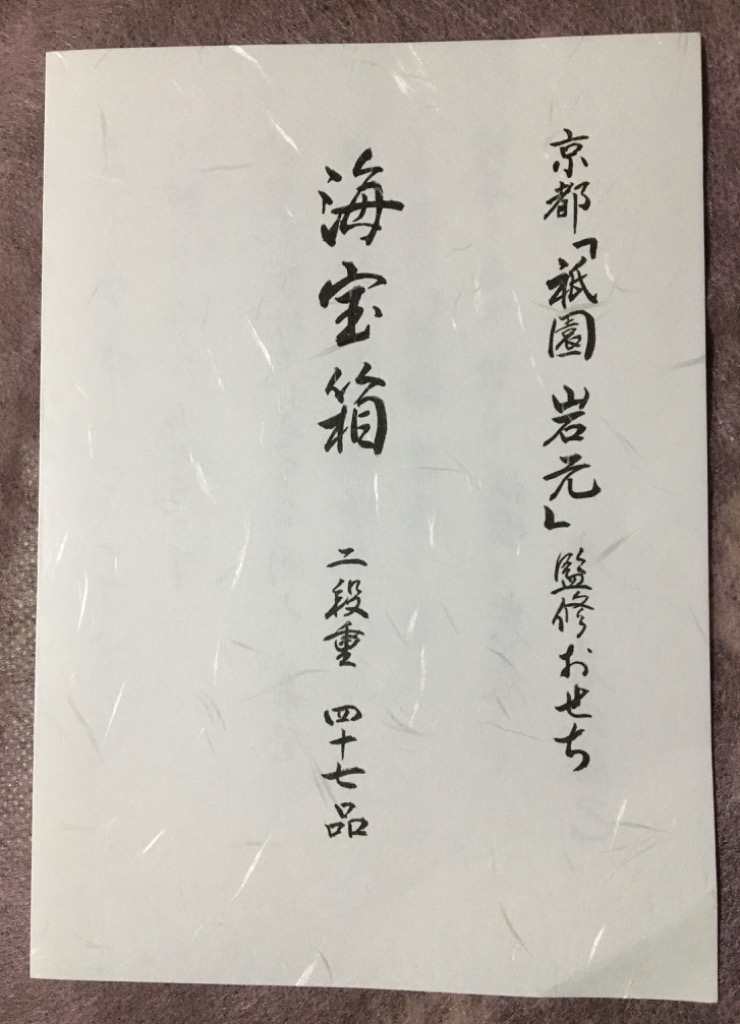 京都「祇園 岩元」監修おせち
海宝箱 二段重 四十七品